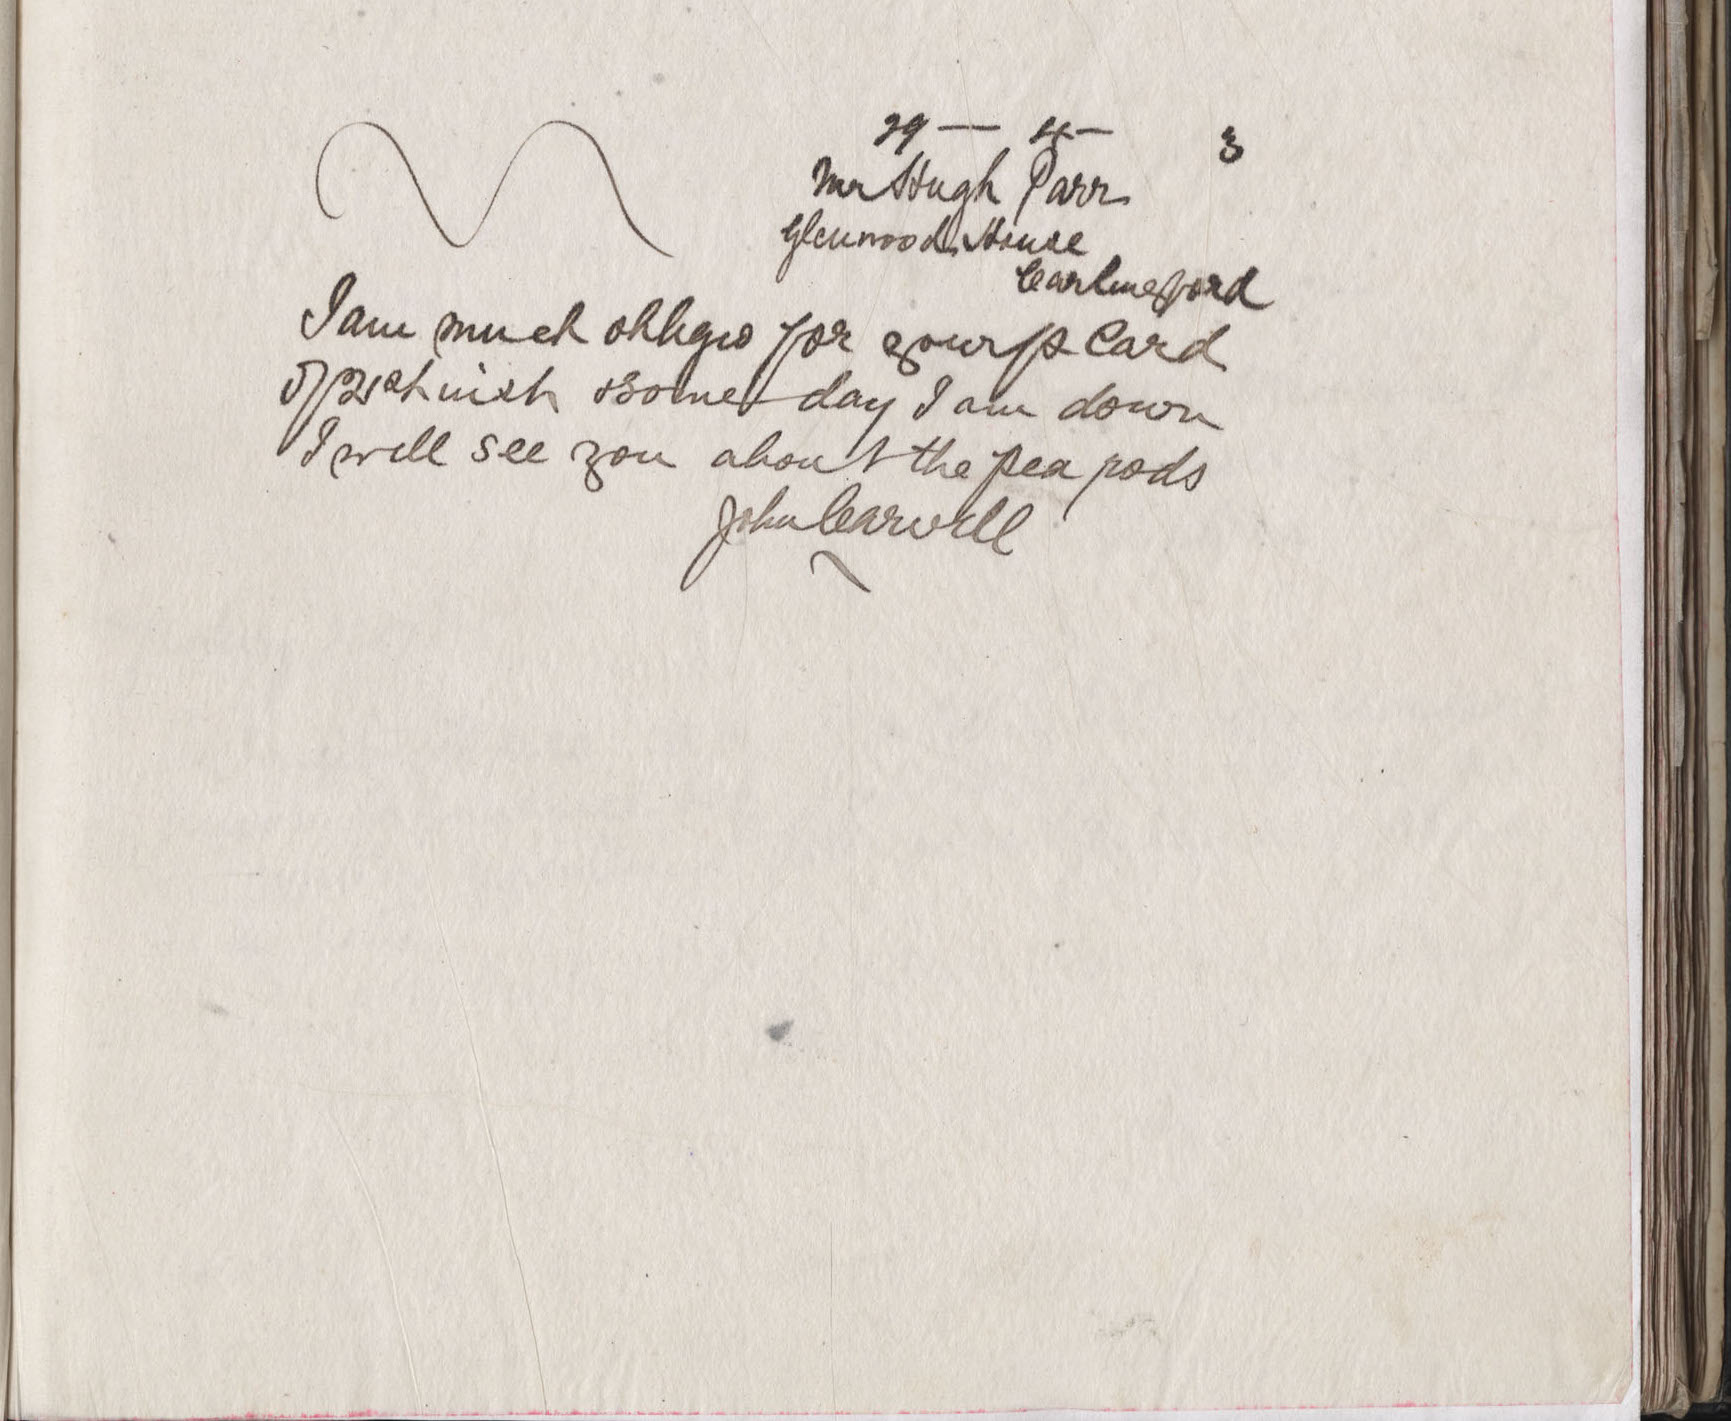 29 — 4 — 3
Mr Hugh Parr
Glenwood House
Carlingford
I am much obliged for your p Card
of 21st inst some day I am down
I will see you about the pea rods
John Carvill